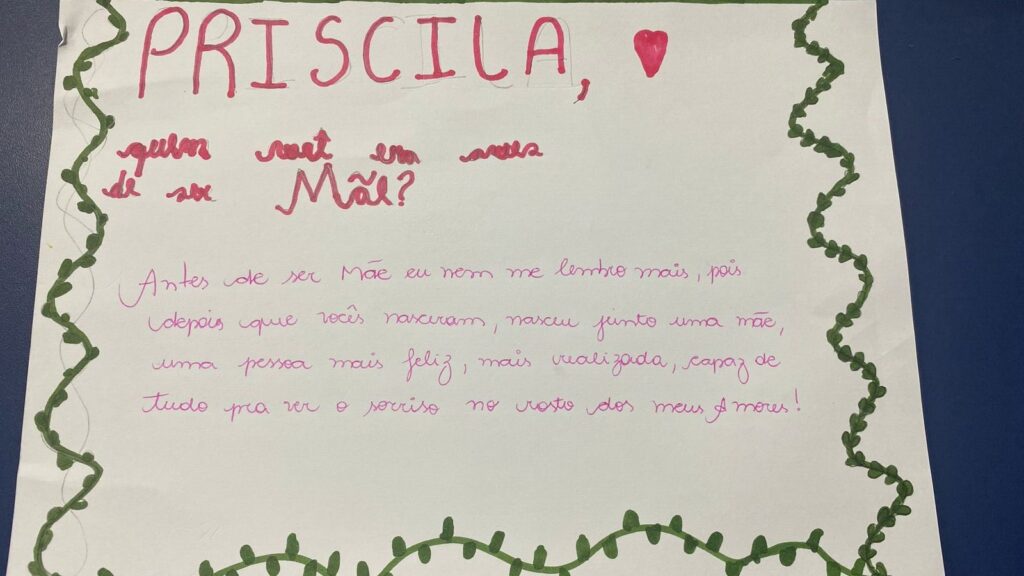 PRISCILA,
quem você era antes
de ser Mãe?
Antes de ser Mãe eu nem me lembro mais, pois
depois que vocês nasceram, nasceu junto uma mãe,
uma pessoa mais feliz, mais realizada, capaz de
tudo pra ver o sorriso no rosto dos meus Amores!